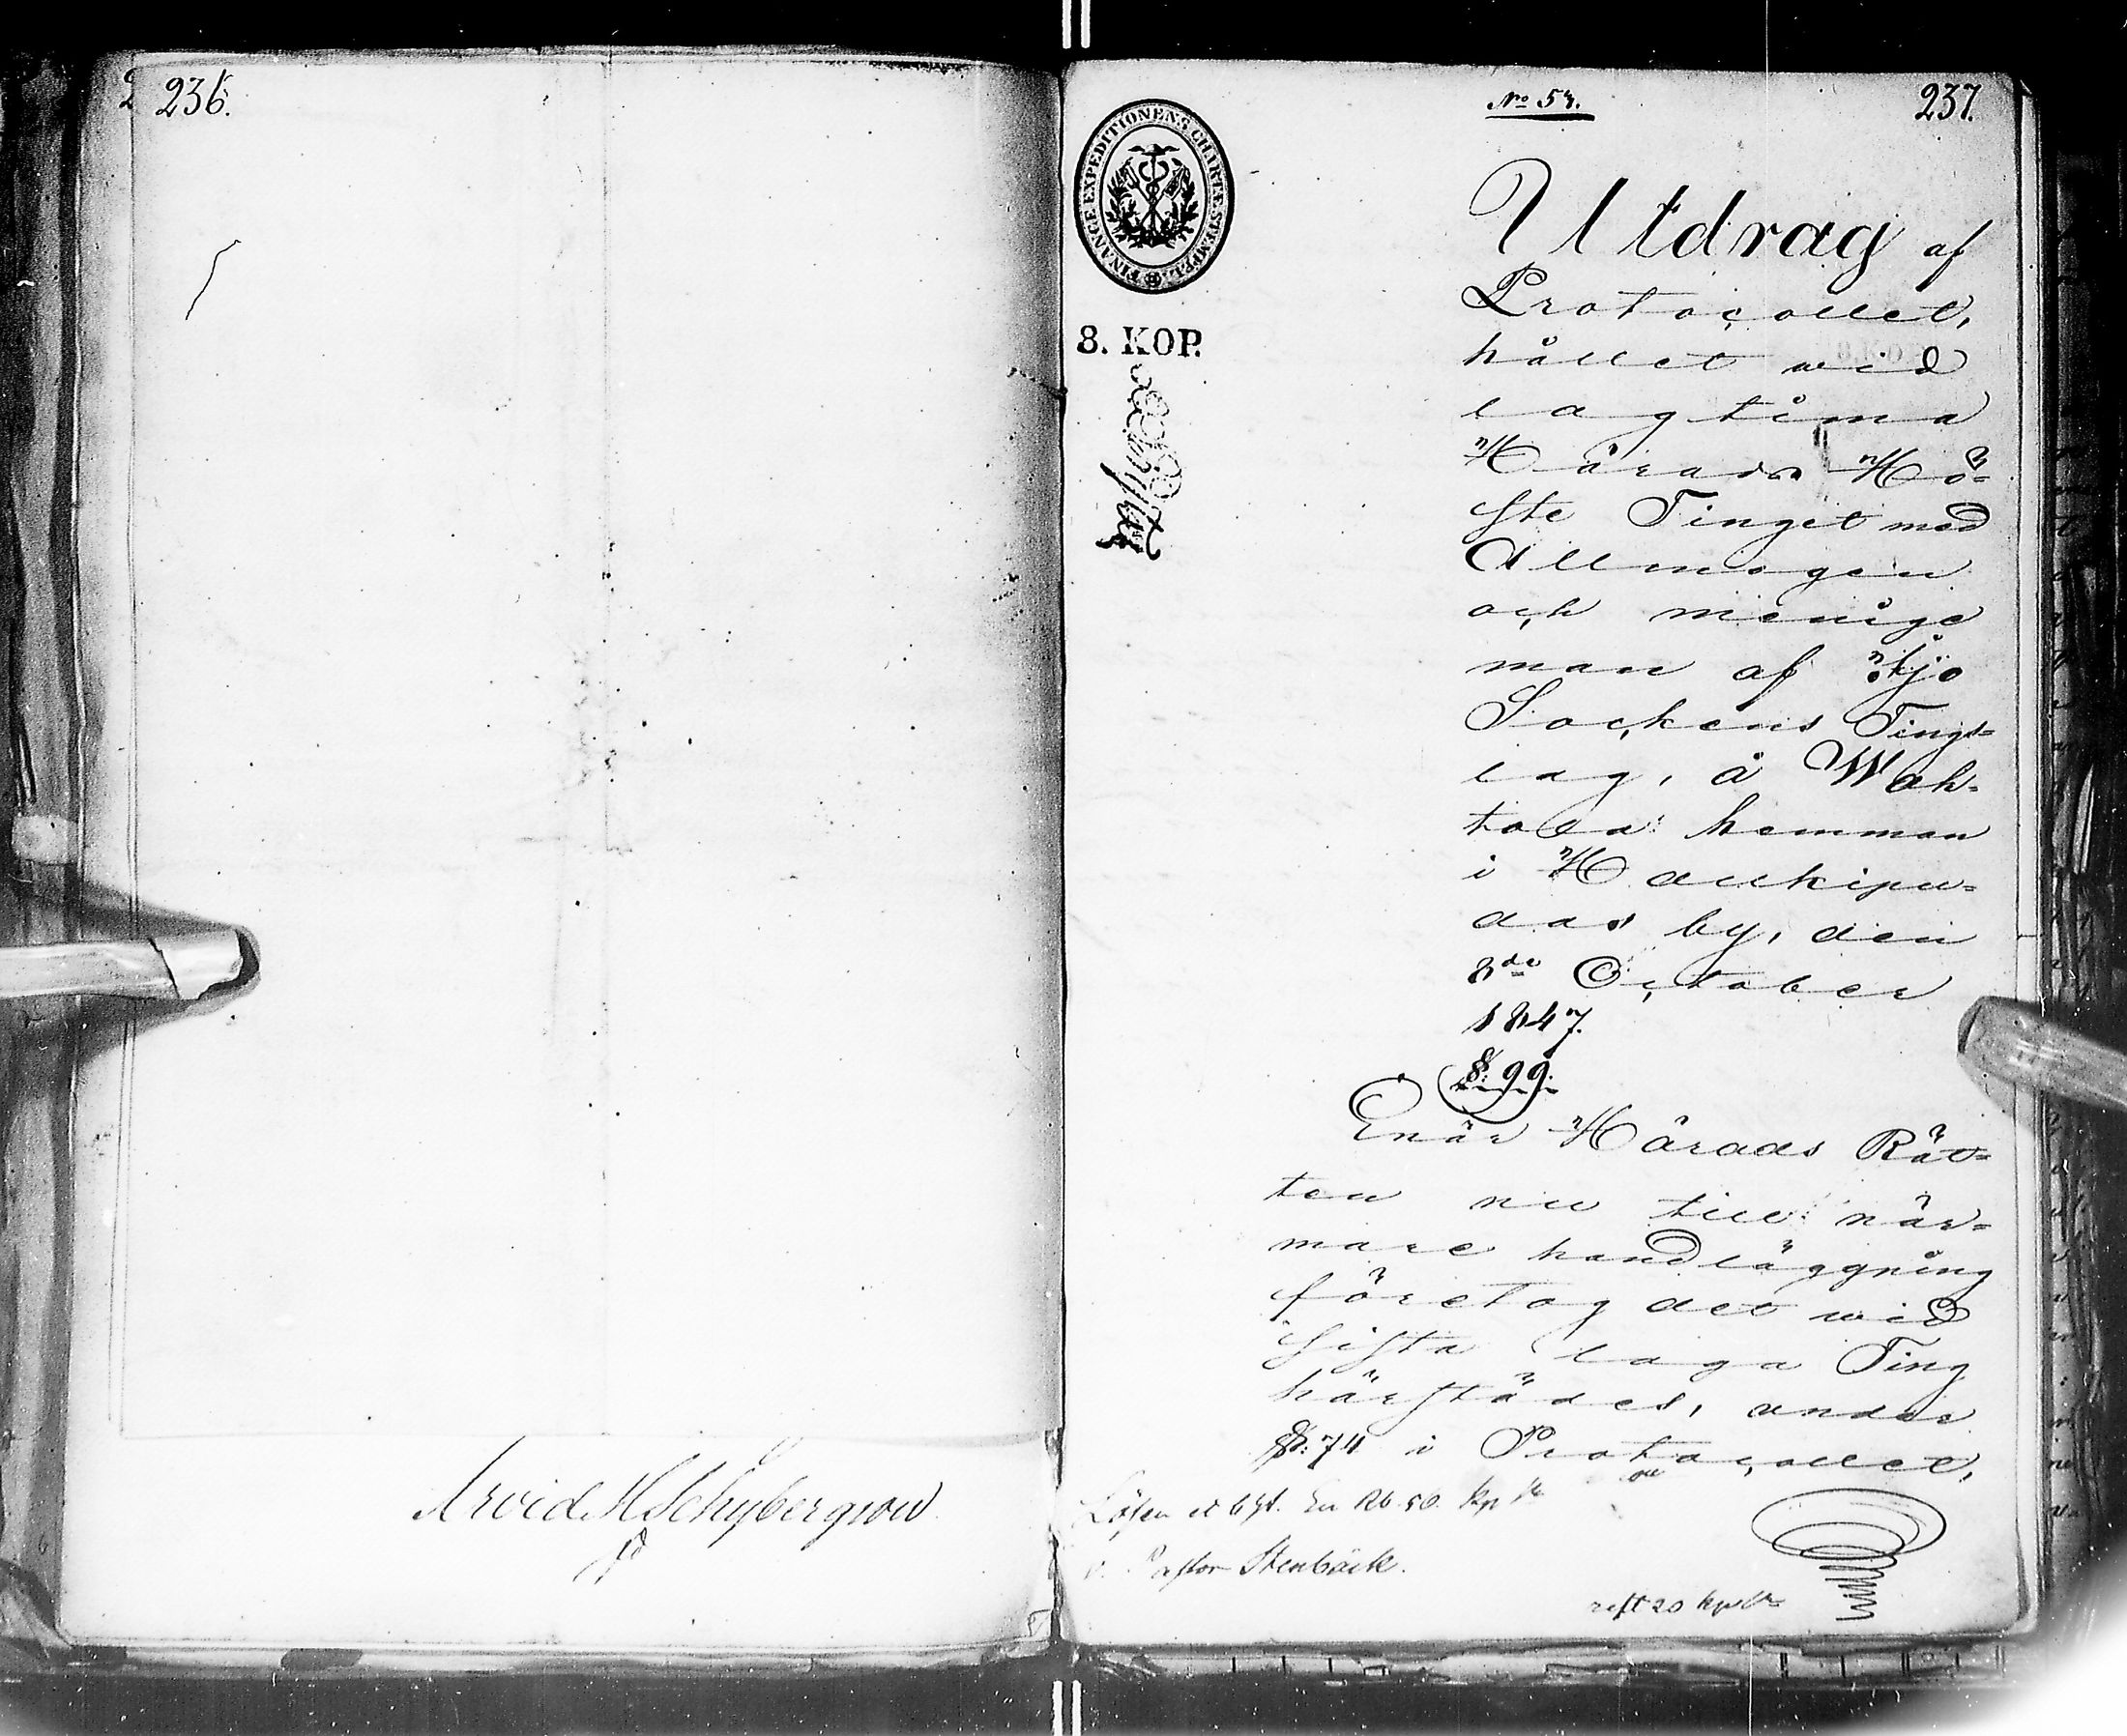 236.
Arvid H Schybergson
237.
No 53.
FINANCE EXPEDITIONENS CHARTÆ STEMPEL
8. KOP.
Utdrag af
Protocollet,
hållet vid
lagtima
Härads Hö-
ste Tinget med
Allmogen
och menige
man af Ijo
Sockens Tings-
lag, å Wak-
kola hemman
i Haukipu-
das by, den
8de October
1847.
§: 99.
Enär Härads Rät-
ten nu till när-
mare handläggning
företog det wid
sista laga Ting
härstädes, under
§: 74 i Protocollet,
Lösen
En Rb 56. kop Sr
Pastor Stenbäck.
rest 20 kop Sr